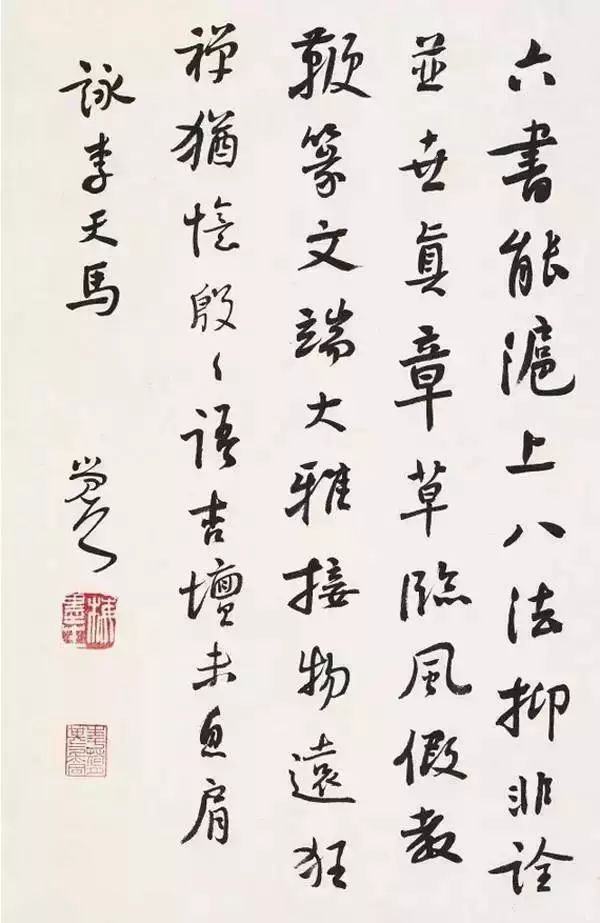 六書能滬上八法抑非詮
並世眞章草臨風假教
鞭篆文端大雅接物遠狂
禪猶憶殷〻語杏壇未息肩
詠李天馬